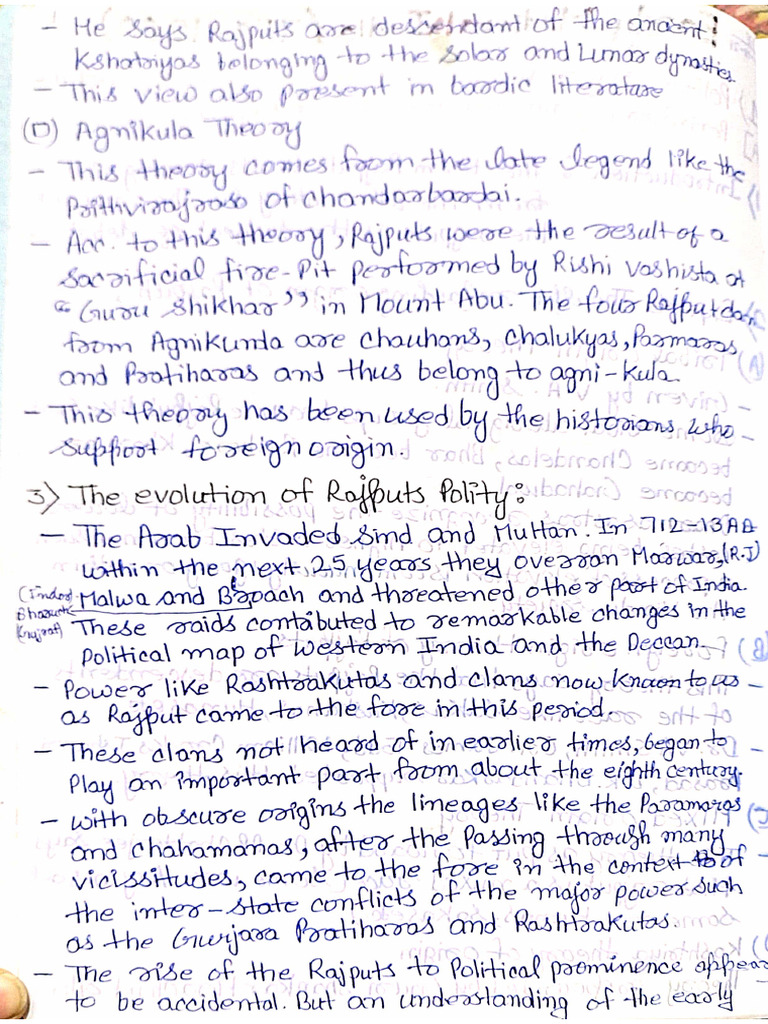 - He says Rajputs are descendant of the ancient
Kshatriyas belonging to the solar and Lunar dynasties.
- This view also present in bardic literature
(D) Agnikula Theory
- This theory comes from the late legend like the
Prithvirajraso of Chandarbardai.
- Acc. to this theory, Rajputs were the result of a
sacrificial fire-Pit performed by Rishi Vashista at
"Guru Shikhar" in Mount Abu. The four Rajput clan
from Agnikunda are Chauhans, Chalukyas, Parmaras
and Pratiharas and thus belong to agni-kula.
- This theory has been used by the historians who
support foreign origin.
3) The evolution of Rajputs Polity:
- The Arab Invaded Sind and Multan. In 712-13 AD
within the next 25 years they overran Marwar, (R.J)
Malwa and Broach and threatened other part of India.
(Indore
Bharuch
Gujrat)
These raids contibuted to remarkable changes in the
Political map of western India and the Deccan.
- Power like Rashtrakutas and clans now known to us
as Rajput came to the fore in this period.
- These clans not heard of in earlier times, began to
Play an important part from about the eighth century.
- with obscure origins the lineages like the Paramaras
and Chahamanas, after the Passing through many
vicissitudes, came to the fore in the context of
the inter-state conflicts of the major power such
as the Gurjara Pratiharas and Rashtrakutas.
- The rise of the Rajputs to Political prominence appear
to be accidental. But an understanding of the early